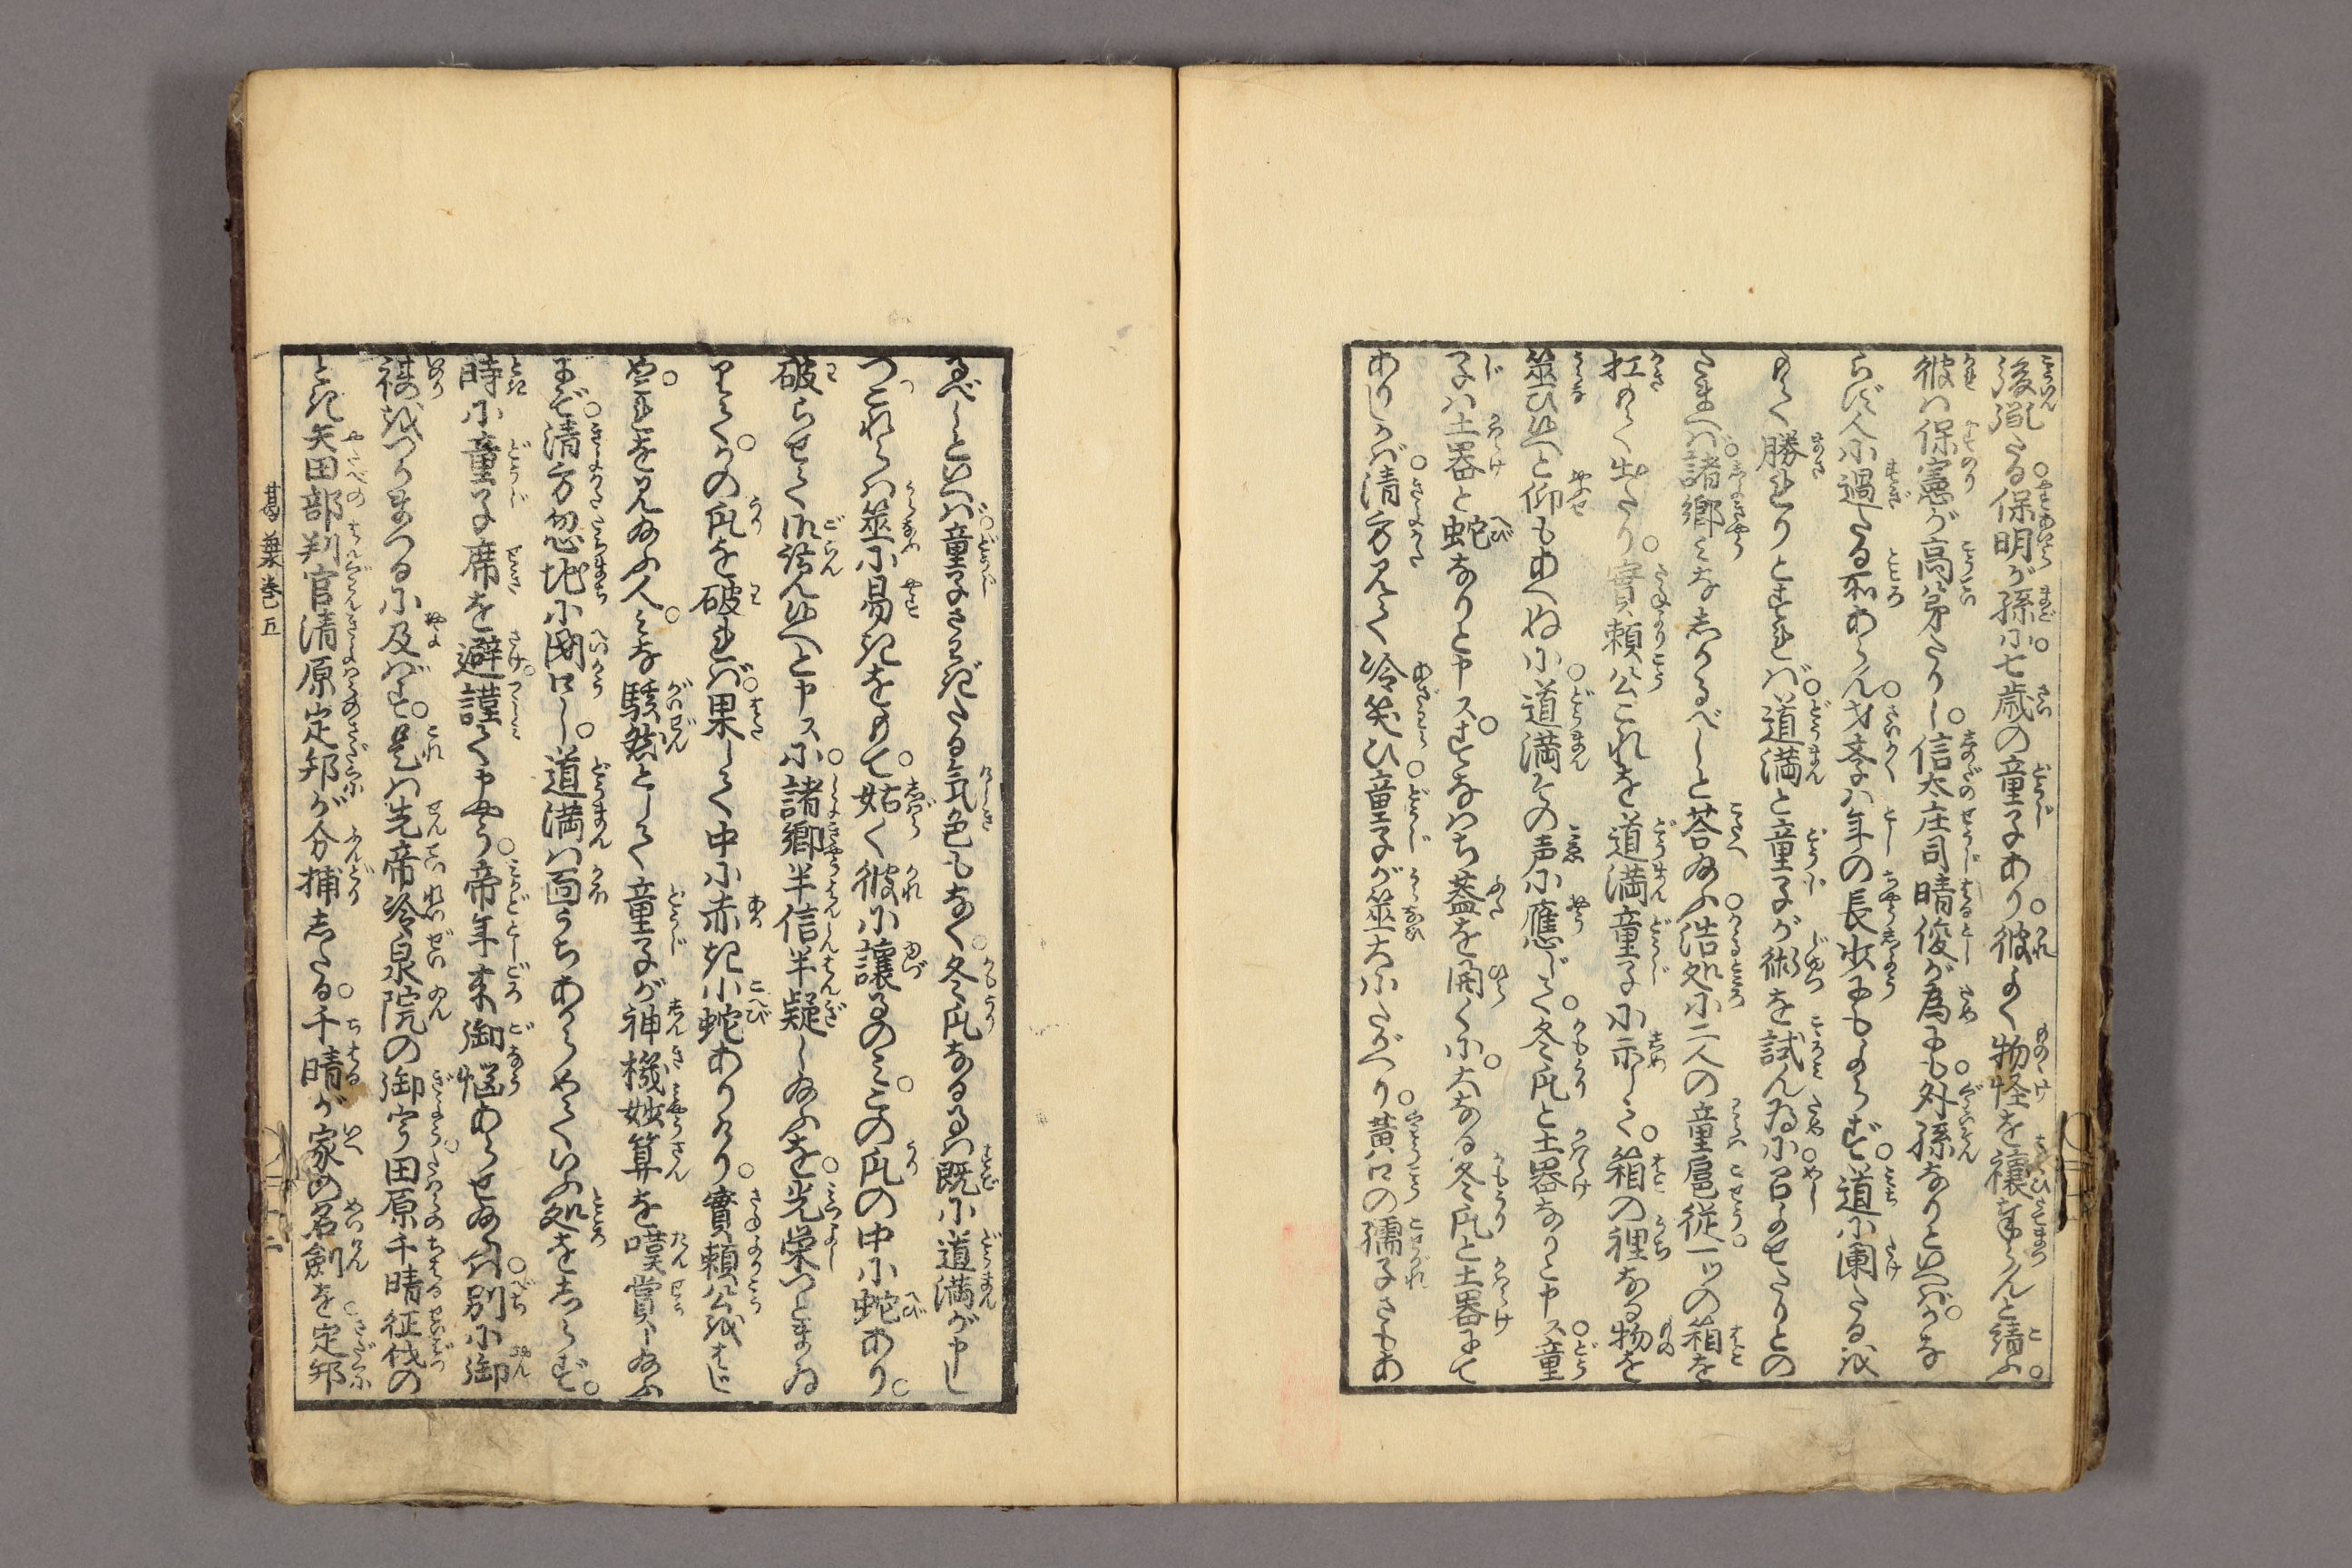 後胤たる保明が孫に七歳の童子あり。彼よく物怪を禳ひ奉らんと績ふ。
彼は保憲が高弟たりし信太庄司晴俊が為にも外孫なりといへば。かな
らず人に過たる所あらん。才学は年の長少にもよらず。道に闌たるを
もて勝れりとすれば。道満と童子が術を試ん為に。召よせたりとの
たまへば。諸卿みなしかるべしと荅給ふ。浩処に二人の童扈従一ツの箱を
扛もて出たり。實頼公これを道満童子に示して。箱の裡なる物を
筮ひ候へと仰もあへぬに。道満その声に應じて。冬瓜と土器なりと申ス。童
子は土器と蛇なりと申ス。すなはち蓋を開くに。大なる冬瓜と土器にて
ありしかば。清方見て冷笑ひ。童子が筮大にたがへり。黄口の孺子さもあ
るべしといへば。童子さわぎたる気色もなく。冬瓜なるは既に道満が申しし
つ。これらは筮に易きをもて。姑く彼に讓るのみ。この瓜の中に蛇あり。
破らせて御覧候へと申スに。諸卿半信半疑し給ふを。光栄つとまゐ
りて。かの瓜を破れば。果して中に赤き小蛇ありけり。實頼公をはじ
め。これを見給ふ人。みな駭然として童子が神機妙算を嘆賞し給ふ
にぞ。清方忽地に閉口し。道満は面うちあからめていふ処をしらず。
時に童子席を避。謹て申すやう。帝年来御悩あらせ給へば。別に御
祺をつかまつるに及ばず。是は先帝冷泉院の御宇。田原千晴征伐の
とき。矢田部判官清原定邦が分捕したる。千晴が家の名劍を。定邦
葛葉巻五